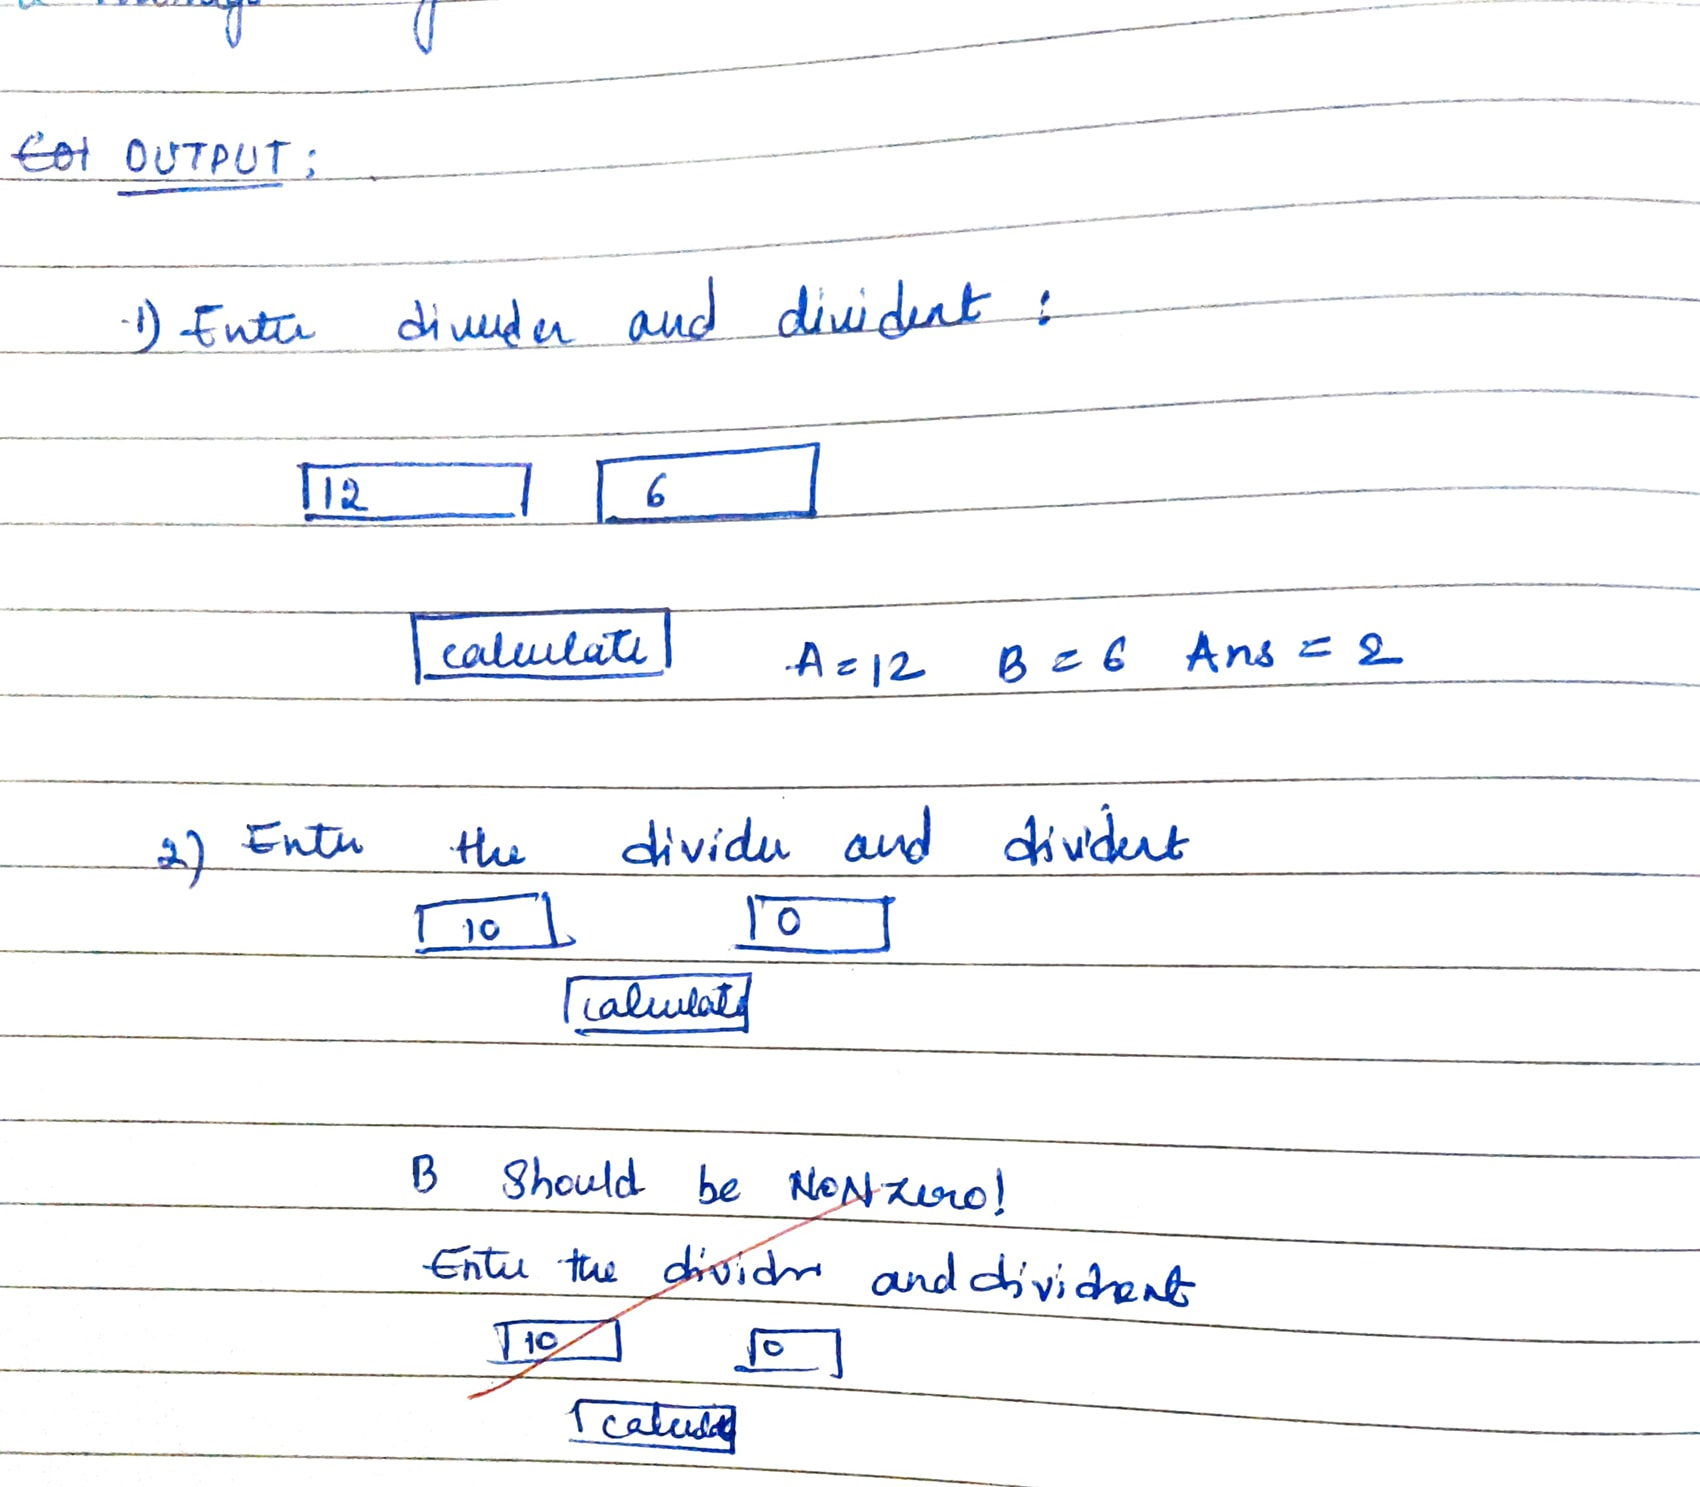 OUTPUT:
1) Enter divider and divident:
12 6
calculate A=12 B=6 Ans=2
2) Enter the divider and divident
10 0
calculate
B Should be NONZero!
Enter the divider and divident
10 0